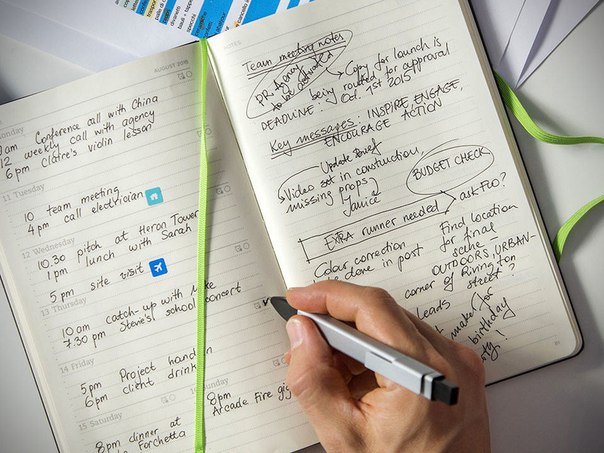 AUGUST 2015
Monday
am Conference call with China
12 weekly call with agency
6 pm Claire's violin lesson
11 Tuesday
10 team meeting
4 pm call electrician
12 Wednesday
10.30 pitch at Heron Tower
1 pm lunch with Sarah
5 pm site visit
13 Thursday
10 am catch-up with
7.30 pm Steve's school concert
14 Friday
5 pm Project hand in
6 pm client drinks
15 Saturday
8 pm dinner at
Forchetta
Sunday
8pm
Arcade Fire gig
NOTES
Team meeting notes
PR Agency
to be
Copy for launch is
being routed for approval
DEADLINE: Oct. 1st 2015
Key messages: INSPIRE, ENGAGE,
ENCOURAGE ACTION
Update Brief
Video set in construction,
missing props
Janice
BUDGET CHECK
EXTRA runner needed
ask FOO?
Colour correction
be done in post
Find location
for final
scene
OUTDOORS, URBAN-
corner of Rivington
street?
Leads
make for
birthday
!